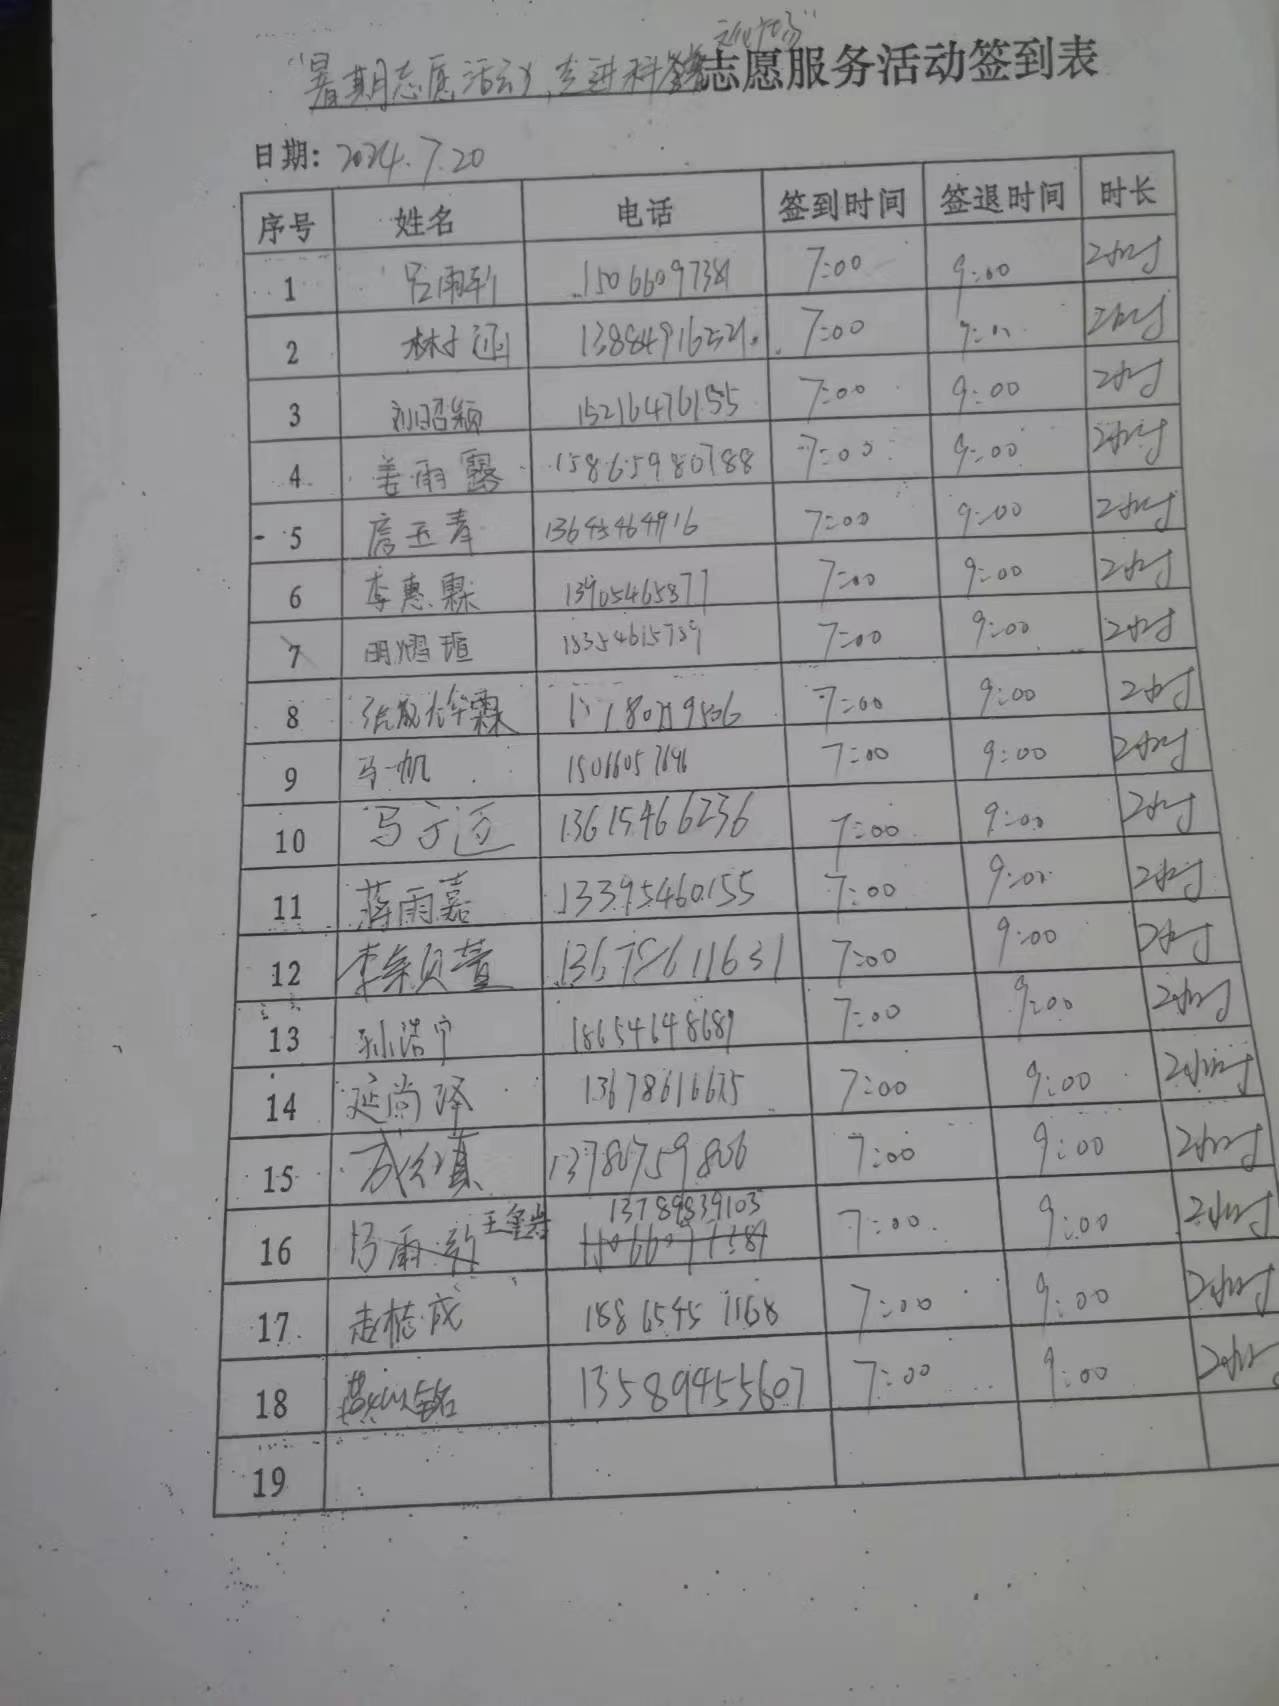 "暑期志愿活动,走进科 志愿服务活动签到表
日期: 2024.7.20
序号 姓名 电话 签到时间 签退时间 时长
1 15066097381 7:00 9:00 2小时
2 林子涵 13884916521 7:00 2小时
3 刘昭颖 15216476155 7:00 9:00 2小时
4 姜雨露 15865980788 7:00 9:00 2小时
5 房玉青 13645464916 7:00 9:00 2小时
6 李惠霖 13905465877 7:00 9:00 2小时
7 明熠瑄 18354615759 7:00 9:00 2小时
8 7:00 9:00 2小时
9 马一帆 7:00 9:00 2小时
10 13615466236 7:00 9:00 2小时
11 蒋雨嘉 13395460155 7:00 9:00 2小时
12 7:00 9:00 2小时
13 孙浩宁 18654648689 7:00 9:00 2小时
14 延尚泽 13678616675 7:00 9:00 2小时
15 13780759806 7:00 9:00 2小时
16 13789839103 7:00 9:00 2小时
17 18865457168 7:00 9:00 2小时
18 13589455607 7:00 9:00 2小时
19